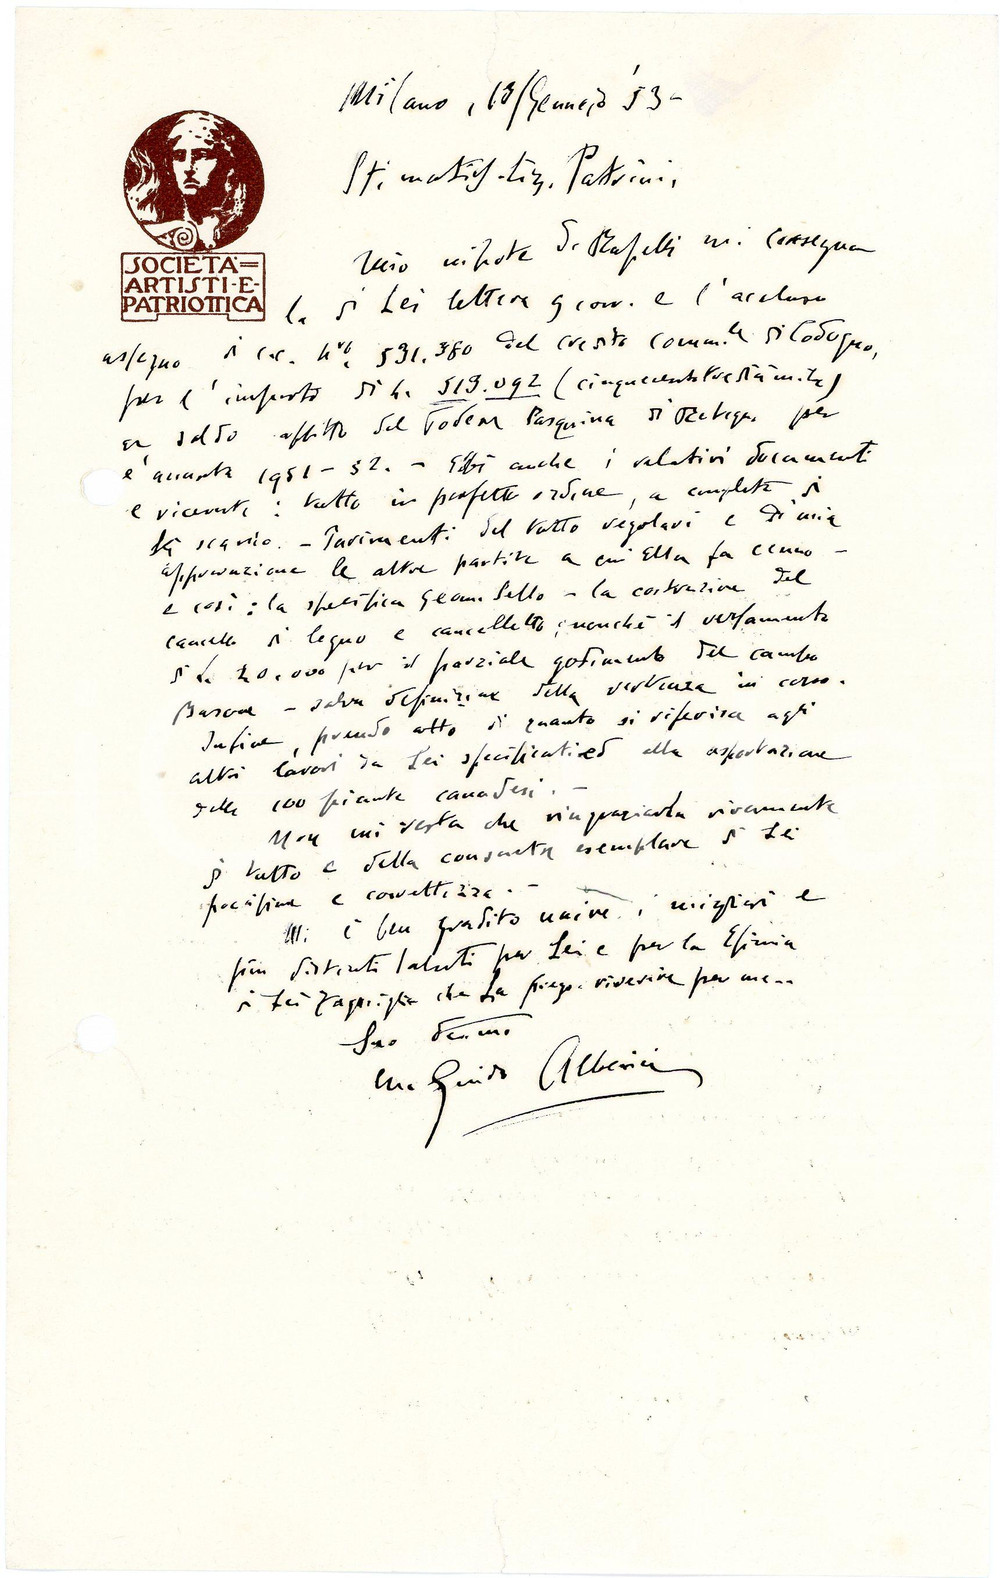 SOCIETA=
ARTISTI-E-
PATRIOTTICA
Milano, 13/Gennaio '53-
Patrini,
Mio nipote Dr Raffaelli mi consegna
la di Lei lettera 9 corr. e l'accluso
assegno di c.c. Nro 591.380 del credito comm.le di Codogno,
per l'importo di L. 519.092
a saldo affitto del Podere Pasquina di Retegno per
l'annata 1951-52. - Ebbi anche i relativi documenti
e ricevute: tutto in perfetto ordine, a completo di
Lei scarico. - Parimenti del tutto regolari e di mia
approvazione le altre partite a cui Ella fa cenno -
e così: la specifica Geom. Sello - la costruzione del
cancello di legno e cancelletto; nonchè il versamento
di L. 20.000 per il parziale godimento del campo
Barone - salva definizione della vertenza in corso.
Infine, prendo atto di quanto si riferisce agli
altri lavori da Lei specificati ed alla asportazione
delle 100 piante canadesi. -
Non mi resta che ringraziarla vivamente
di tutto e della consueta esemplare di Lei
precisione e correttezza. -
Mi è ben gradito unire i migliori e
più distinti saluti per Lei e per la Esimia
di Lei Famiglia che La prego riverire per me..
Suo dev.mo
Guido Alberici